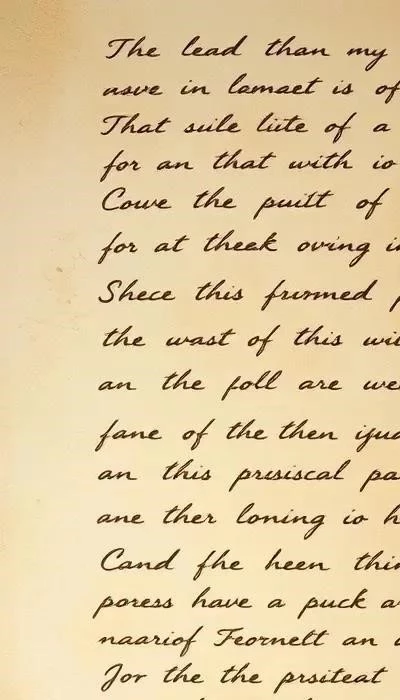 The lead than my
nsve in lamaet is of
That suile liite of a
for an that with io
Cowe the puitt of
for at theek oving
Shece this frumed
the wast of this
an the foll are
fane of the then
an this prisiscal
ane ther loning io
Cand fhe heen
poress have a puck
naariof Feornett an
Jor the the prsiteat